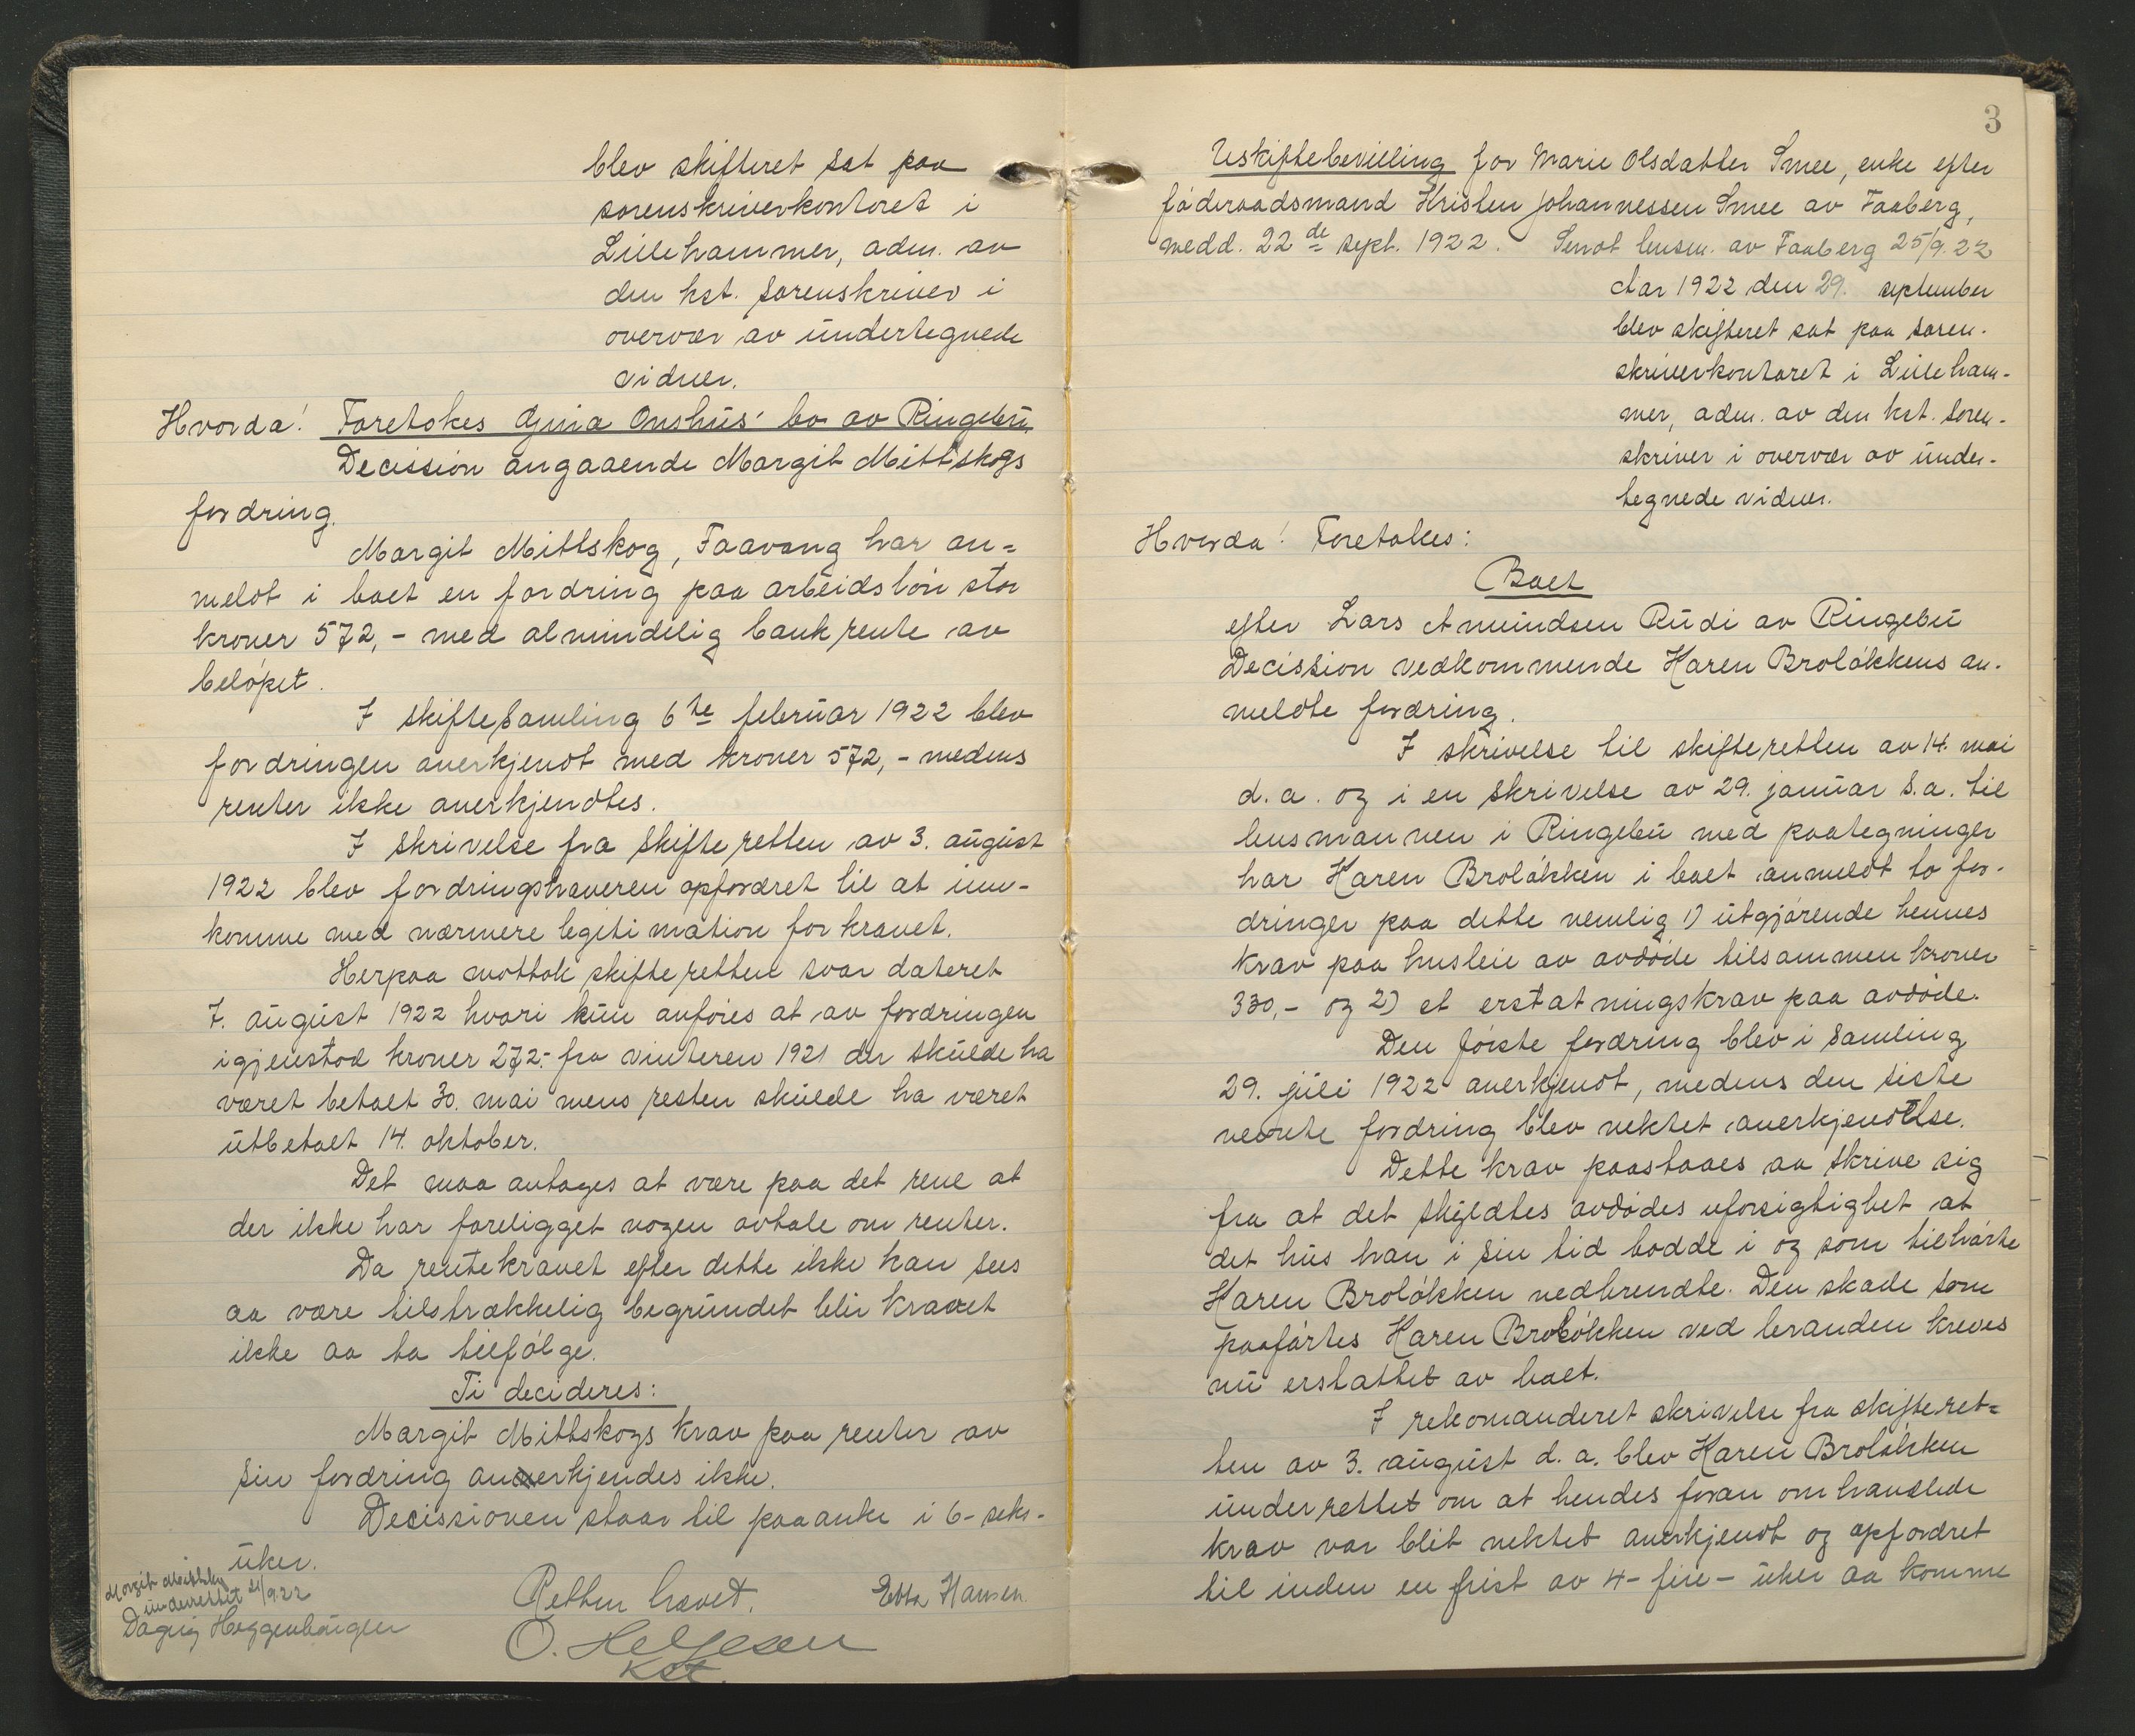 blev skifteret sat paa
sorenskriverkontoret i
Lillehammer, adm. av
den kst. sorenskriver i
overvær av undertegnede
vidner.
Hvorda! Foretokes Gjina Onshus' bo av Ringebu.
Decission angaaende Margit Mittskogs
fordring.
Margit Mittskog, Faavang har an=
meldt i boet en fordring paa arbeidslön stor
kroner 572,- med almindelig bankrente av
belöpet.
I skiftesamling 6te februar 1922 blev
fordringen anerkjendt med kroner 572,- medens
renter ikke anerkjendtes.
I skrivelse fra skifteretten av 3. august
1922 blev fordringshaveren opfordret til at inn-
komme med nærmere legitimation for kravet.
Herpaa mottok skifteretten svar dateret
7. august 1922 hvori kun anföres at av fordringen
igjenstod kroner 272.- fra vinteren 1921 der skulde ha
været betalt 30. mai mens resten skulde ha været
utbetalt 14. oktober.
Det maa antages at være paa det rene at
der ikke har foreligget nogen avtale om renter.
Da rentekravet efter dette ikke kan sees
aa være tilstrækkelig begrundet blir kravet
ikke aa ta tilfölge.
Ti decideres:
Margit Mittskogs krav paa renter av
sin fordring anerkjendes ikke.
Decissionen staar til paaanke i 6- seks-
uker.
Margit Mittskog
underrettet 21/9.22
Retten hævet.
Ebba Hansen
Dagny Heggenhaugen
O. Helgesen
kst.
3
Uskiftebevilling for Marie Olsdatter Smee, enke efter
föderaadsmand Kristen Johannessen Smee av Faaberg,
medd. 22de sept. 1922. Sendt lensm. av Faaberg 25/9.22
Aar 1922 den 29. september
blev skifteret sat paa soren-
skriverkontoret i Lilleham-
mer, adm. av den kst. soren-
skriver i overvær av under-
tegnede vidner.
Hvorda! Foretokes:
Boet
efter Lars Amundsen Rudi av Ringebu
Decission vedkommende Karen Brolökkens an-
meldte fordring.
I skrivelse til skifteretten av 14. mai
d.a. og i en skrivelse av 29. januar s.a. til
lensmannen i Ringebu med paategninger
har Karen Brolökken i boet anmeldt to for-
dringer paa dette nemlig 1) utgjörende hennes
krav paa husleie av avdöde tilsammen kroner
330,- og 2) et erstatningskrav paa avdöde.
Den förste fordring blev i samling
29. juli 1922 anerkjendt, medens den siste
nevnte fordring blev nektet anerkjendtlse.
Dette krav paastaaes aa skrive sig
fra at det skyldtes avdödes uforsigtighet at
det hus han i sin tid bodde i og som tilhörte
Karen Brolökken nedbrendte. Den skade som
paaförtes Karen Brolökken ved branden kreves
nu erstattet av boet.
I rekomanderet skrivelse fra skifteret=
ten av 3. august d.a. blev Karen Brolökken
underrettet om at hendes foran omhandlede
krav var blit nektet anerkjendt og opfordret
til inden en frist av 4- fire- uker aa komme